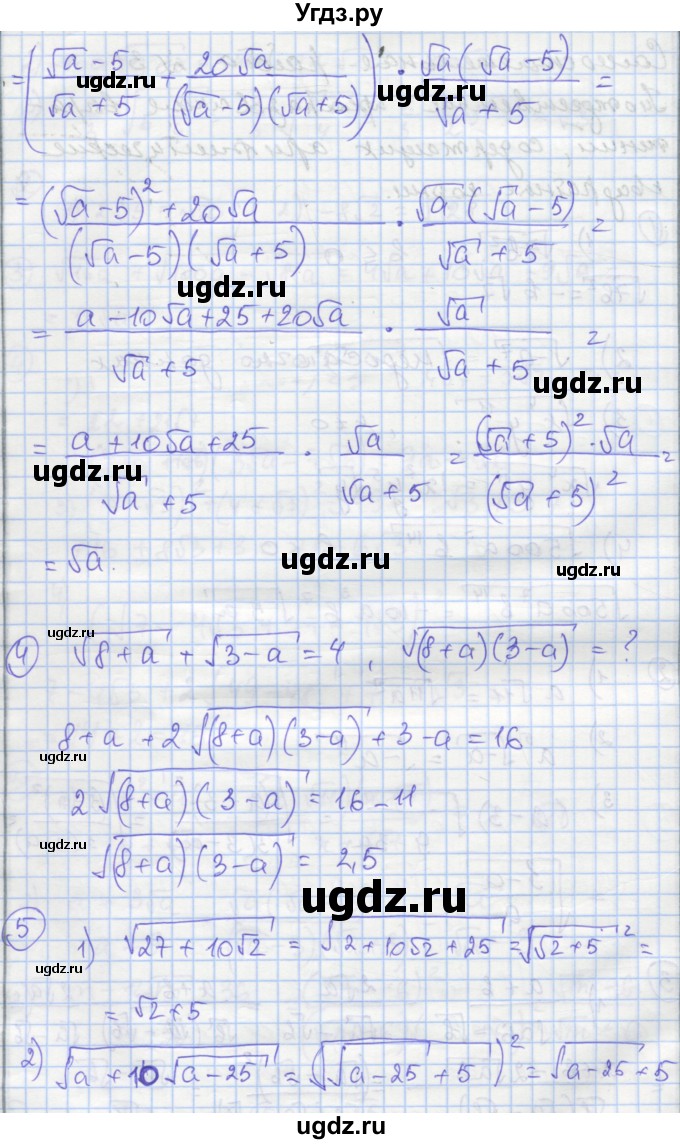 Угдз.ру
= ( (√a - 5)/(√a + 5) + 20√a/((√a - 5)(√a + 5)) ) · √a(√a - 5)/(√a + 5) =
ugdz.ru
ugdz.ru
= ((√a - 5)² + 20√a)/((√a - 5)(√a + 5)) · √a(√a - 5)/(√a + 5) =
ugdz.ru
= (a - 10√a + 25 + 20√a)/(√a + 5) · √a/(√a + 5) =
ugdz.ru
= (a + 10√a + 25)/(√a + 5) · √a/(√a + 5) = ((√a + 5)² · √a)/(√a + 5)² =
ugdz.ru
= √a.
ugdz.ru
ugdz.ru
ugdz.ru
4 √(8+a) + √(3-a) = 4, √((8+a)(3-a)) = ?
8+a + 2√((8+a)(3-a)) + 3-a = 16
ugdz.ru
2√((8+a)(3-a)) = 16-11
ugdz.ru
√((8+a)(3-a)) = 2,5
ugdz.ru
5 1) √(27 + 10√2) = √(2 + 10√2 + 25) = √(√2 + 5)² =
ugdz.ru
= √2 + 5
2) √(a + 10√(a-25)) = √(√(a-25) + 5)² = √(a-25) + 5
ugdz.ru
ugdz.ru